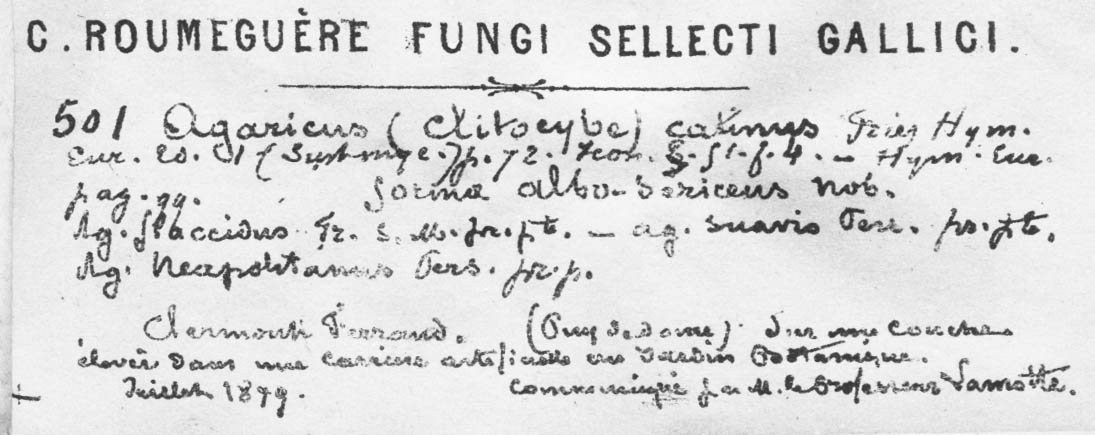 C. ROUMEGUÈRE FUNGI SELLECTI GALLICI.
501 Agaricus (Clitocybe) catinus Fries Hym.
Eur. Ed. 1 (Syst. myc.) p. 72. Icon. t. 51. f. 4. — Hym. Eur.
pag. 99. forma albo-sericeus Nob.
Ag. flaccidus Fr. S. M. pr. pte. — Ag. suavis Pers. pr. pte.
Ag. Neapolitanus Pers. pr. p.
Clermont Ferrand. (Puy de dome) Sur une couche
élevée dans une carrière artificielle au Jardin Botanique.
Juillet 1879. Communiqué par M. le Professeur Lamotte.